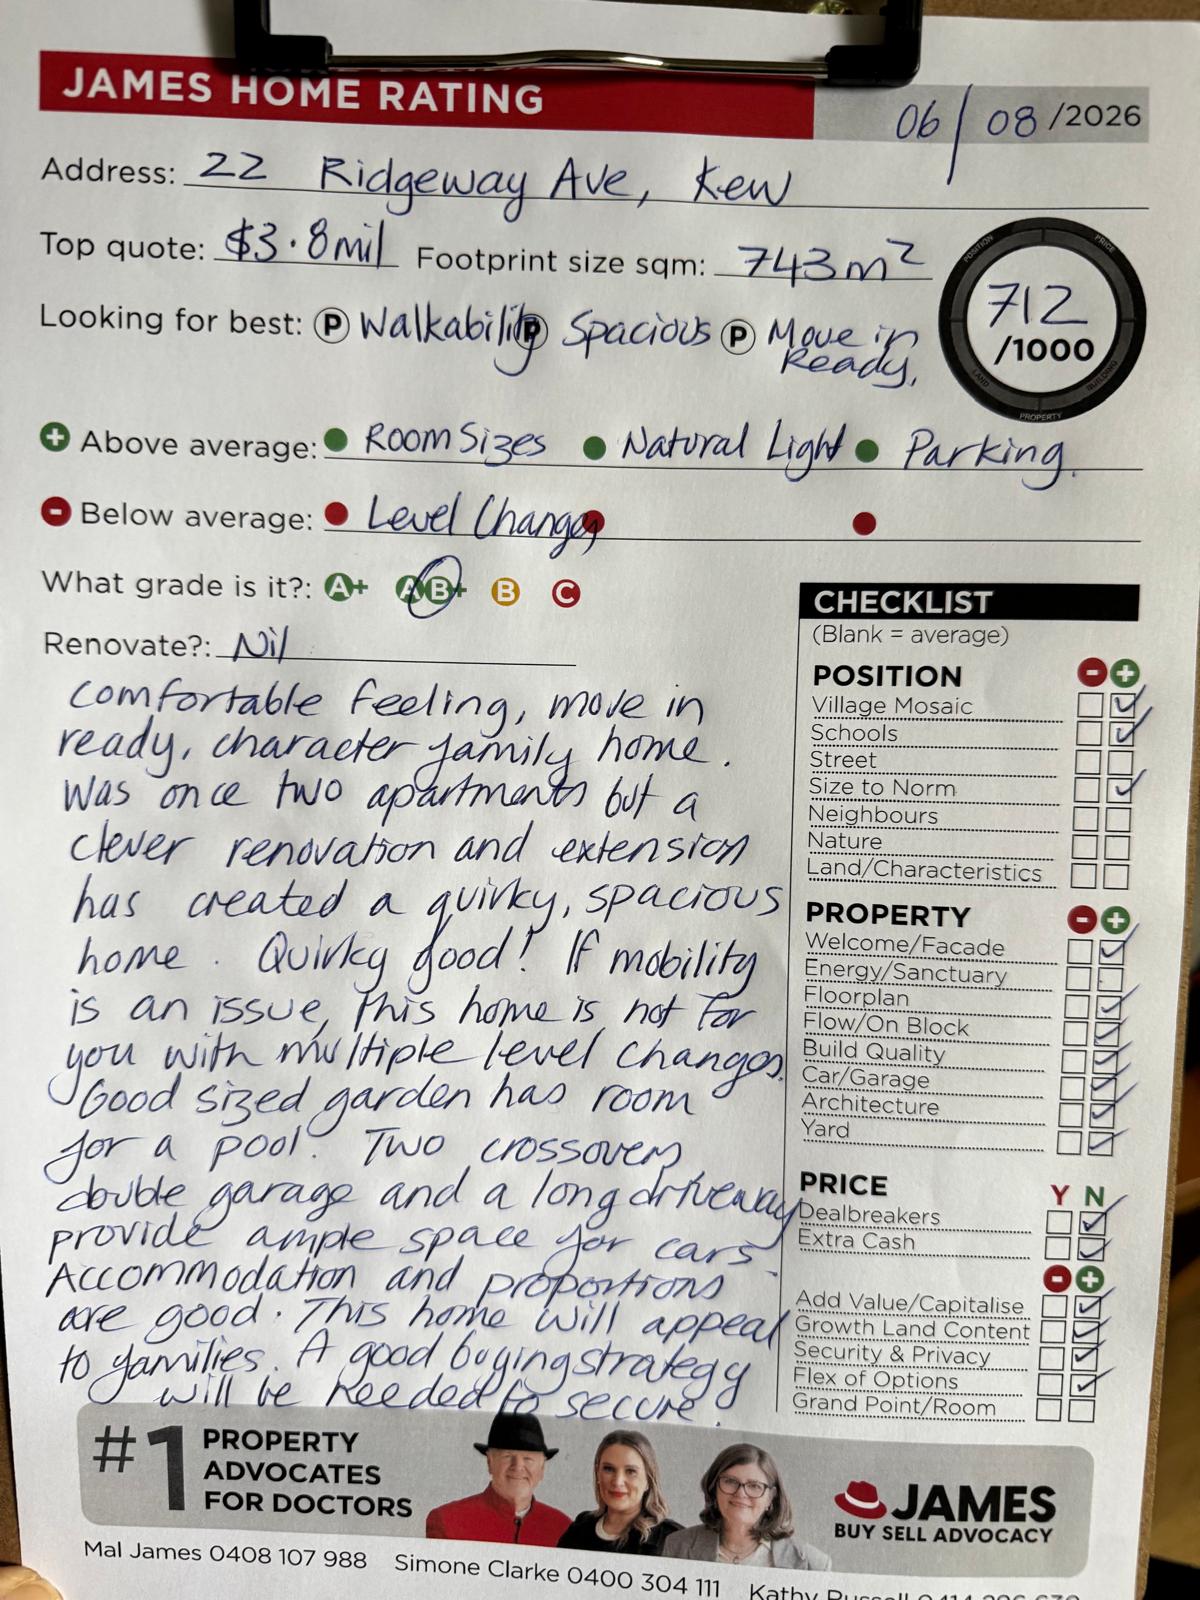 JAMES HOME RATING
06/08/2026
Address: 22 Ridgeway Ave, Kew
Top quote: $3.8mil Footprint size sqm: 743m²
POSITION PRICE BUILDING PROPERTY LAND
712
/1000
Looking for best: P Walkability P Spacious P Move in
Ready.
+ Above average: Room Sizes Natural Light Parking.
- Below average: Level Changes
What grade is it?: A+ A B+ B C
Renovate?: Nil
Comfortable feeling, move in
ready, character family home.
Was once two apartments but a
clever renovation and extension
has created a quirky, spacious
home. Quirky good! If mobility
is an issue, this home is not for
you with multiple level changes.
Good sized garden has room
for a pool. Two crossovers,
double garage and a long driveway
provide ample space for cars.
Accommodation and proportions
are good. This home will appeal
to families. A good buying strategy
will be needed to secure.
CHECKLIST
(Blank = average)
POSITION - +
Village Mosaic
Schools
Street
Size to Norm
Neighbours
Nature
Land/Characteristics
PROPERTY - +
Welcome/Facade
Energy/Sanctuary
Floorplan
Flow/On Block
Build Quality
Car/Garage
Architecture
Yard
PRICE Y N
Dealbreakers
Extra Cash
- +
Add Value/Capitalise
Growth Land Content
Security & Privacy
Flex of Options
Grand Point/Room
#1 PROPERTY
ADVOCATES
FOR DOCTORS
JAMES
BUY SELL ADVOCACY
Mal James 0408 107 988 Simone Clarke 0400 304 111 Kathy Russell